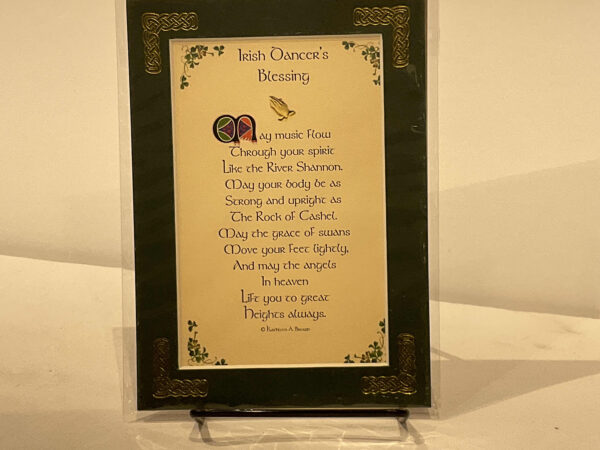 Irish Dancer's
Blessing
May music flow
Through your spirit
Like the River Shannon.
May your body be as
Strong and upright as
The Rock of Cashel.
May the grace of swans
Move your feet lightly,
And may the angels
In heaven
Lift you to great
Heights always.
© Kathleen A. Brown